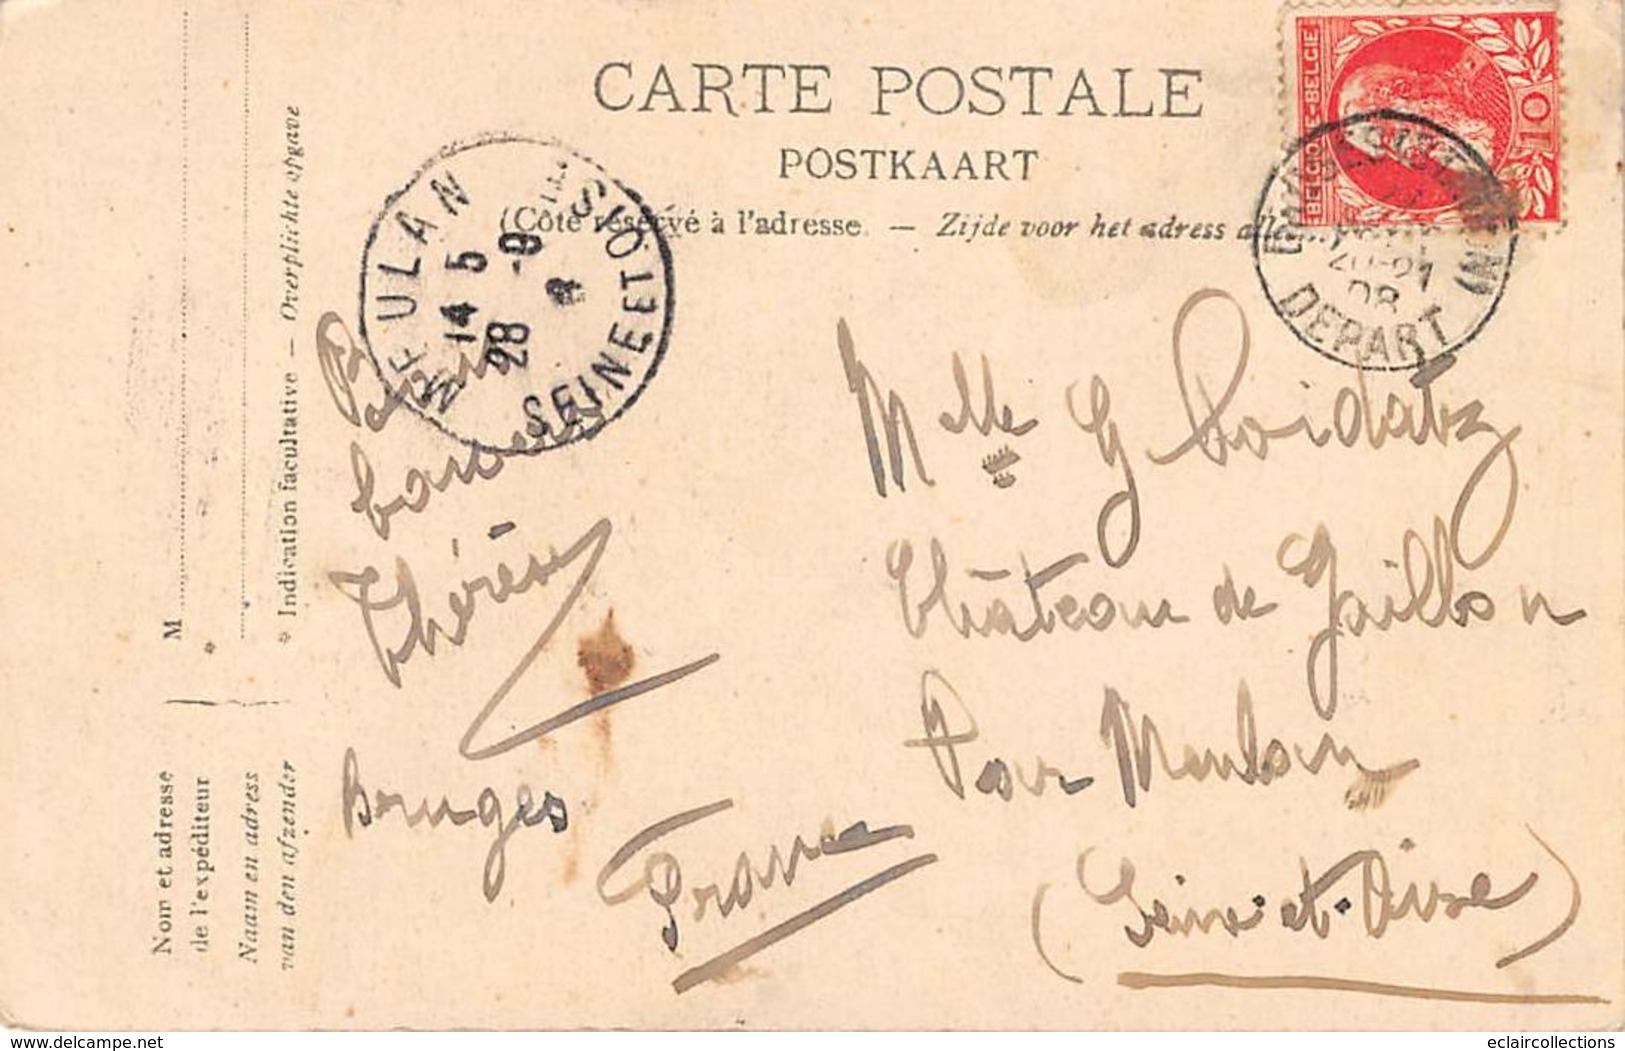 CARTE POSTALE
POSTKAART
(Côté réservé à l'adresse. — Zijde voor het adress
BELGIQUE-BELGIE
10
MEULAN
14 5
28 -9
SEINE ET OISE
20-21
08
DEPART
Bons
baisers
Thérèse
Bruges
Mlle G Loidatz
Château de Gaillon
Par Meulan
(Seine-et-Oise)
France
M
*
* Indication facultative — Overplichte opgave
Nom et adresse
de l'expéditeur
Naam en adress
van den afzender
www.delcampe.net
eclaircollections